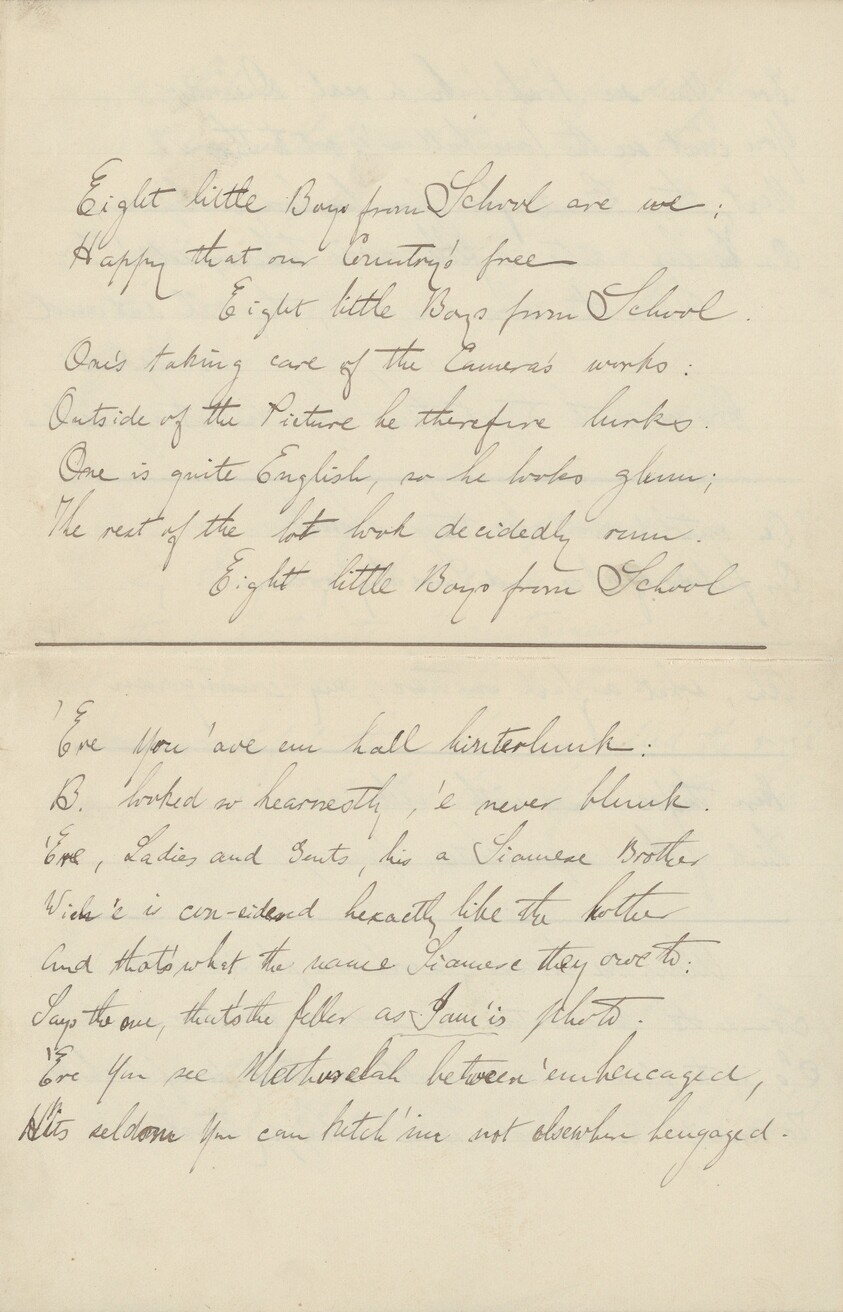 Eight little Boys from School are we;
Happy that our Country's free
Eight little Boys from School.
One's taking care of the Camera's works:
Outside of the Picture he therefore lurks.
One is quite English, so he looks glum;
The rest of the lot look decidedly rum.
Eight little Boys from School
'Ere you 'ave em hall hinterlunk:
B. looked so hearnestly, 'e never blunk.
'Ere, Ladies and Gents, his a Siamese Brother
Wich 'e is con-sidered hexactly like the hother
And that's what the name Siamese they owe to:
Says the one, that's the feller as I am 'is photo.
'Ere you see Methuselah between 'em hencaged,
Hits seldom you can ketch 'im not elsewhere hengaged.